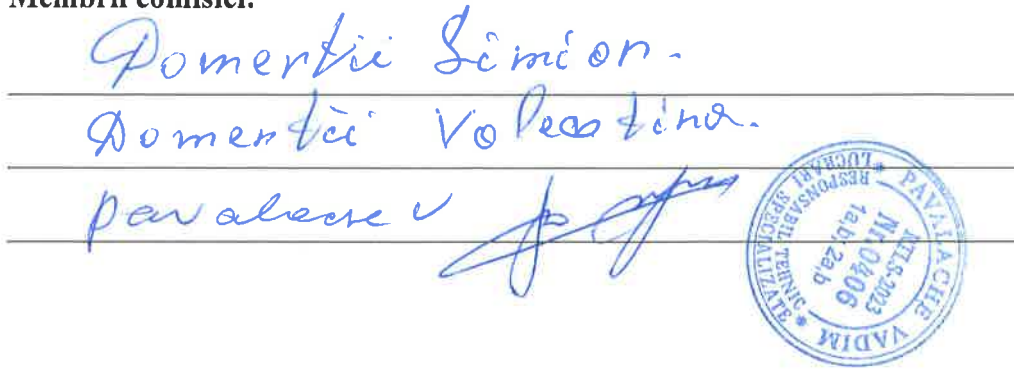 Membrii comisiei:
Domentii Simion.
Domentii Valentina.
Pavalache V
PAVALACHE VADIM
RESPONSABIL TEHNIC
LUCRARI SPECIALIZATE
NTLS-2023
Nr. 0406
1a,b; 2a,b